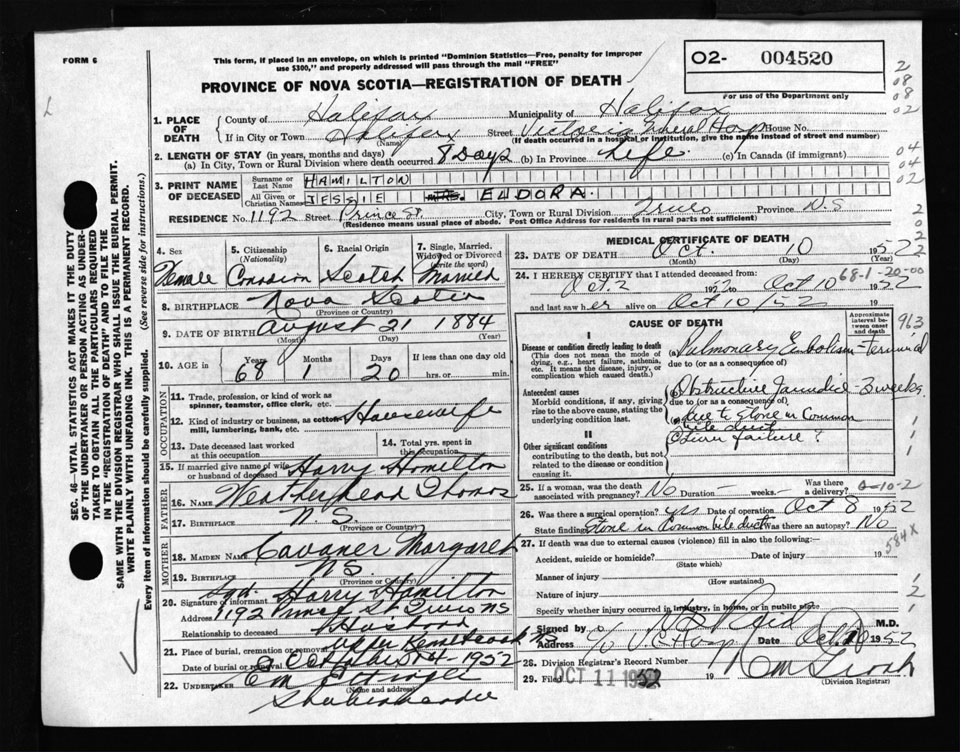 FORM 6
This form, if placed in an envelope, on which is printed "Dominion Statistics—Free, penalty for improper
use $300," and properly addressed will pass through the mail "FREE"
O2- 004520
For use of the Department only
PROVINCE OF NOVA SCOTIA—REGISTRATION OF DEATH
1. PLACE OF DEATH
County of Halifax Municipality of Halifax
If in City or Town Halifax Street Victoria General Hosp House No.
(Name) (If death occurred in a hospital or institution, give the name instead of street and number)
2. LENGTH OF STAY (in years, months and days)
(a) In City, Town or Rural Division where death occurred 8 Days (b) In Province Life (c) In Canada (if immigrant)
3. PRINT NAME OF DECEASED
Surname or Last Name HAMILTON
All Given or Christian Names JESSIE MRS. EUDORA.
RESIDENCE No. 1192 Street Prince St. City, Town or Rural Division Truro Province N.S
(Residence means usual place of abode. Post Office Address for residents in rural parts not sufficient)
4. Sex Female
5. Citizenship (Nationality) Canadian
6. Racial Origin Scotch
7. Single, Married, Widowed or Divorced (write the word) Married
8. BIRTHPLACE Nova Scotia
(Province or Country)
9. DATE OF BIRTH August 21 1884
(Month) (Day) (Year)
10. AGE in 68 Years 1 Months 20 Days If less than one day old
hrs. or min.
OCCUPATION
11. Trade, profession, or kind of work as spinner, teamster, office clerk, etc.
12. Kind of industry or business, as cotton mill, lumbering, bank, etc. Housewife
13. Date deceased last worked at this occupation
14. Total yrs. spent in this occupation
15. If married give name of wife or husband of deceased Harry Hamilton
FATHER
16. NAME Weatherhead Thomas
17. BIRTHPLACE N.S.
(Province or Country)
MOTHER
18. MAIDEN NAME Cavaner Margaret
19. BIRTHPLACE N.S.
(Province or Country)
20. Signature of informant Sgd. Harry Hamilton
Address 1192 Prince St Truro NS
Relationship to deceased Husband
21. Place of burial, cremation or removal Upper Kennetcook NS
Date of burial or removal October 14-1952
22. UNDERTAKER
(Name and address)
Shubenacadie
MEDICAL CERTIFICATE OF DEATH
23. DATE OF DEATH Oct. 10 1952
(Month) (Day) (Year)
24. I HEREBY CERTIFY that I attended deceased from:
Oct. 2 1952 to Oct 10 1952
68-1-20-00
and last saw her alive on Oct 10/52 19
CAUSE OF DEATH
Approximate interval between onset and death
963
Disease or condition directly leading to death
(This does not mean the mode of dying, e.g., heart failure, asthenia, etc. It means the disease, injury, or complication which caused death.)
(a) Pulmonary Embolism—Terminal
due to (or as a consequence of)
Antecedent causes
Morbid conditions, if any, giving rise to the above cause, stating the underlying condition last.
(b) Obstructive Jaundice - 3 weeks
due to (or as a consequence of)
(c) due to stone in Common
bile duct
II
Other significant conditions
contributing to the death, but not related to the disease or condition causing it.
failure?
25. If a woman, was the death associated with pregnancy? No Duration — weeks— Was there a delivery? 0-10-2
26. Was there a surgical operation? yes Date of operation Oct 8 1952
State findings Stone in Common bile duct Was there an autopsy? No
584X
27. If death was due to external causes (violence) fill in also the following:—
Accident, suicide or homicide? Date of injury 19
(State which)
Manner of injury
(How sustained)
Nature of injury
Specify whether injury occurred in industry, in home, or in public place
Signed by Reid M.D.
Address c/o V.G. Hosp Date Oct. 10 1952
28. Division Registrar's Record Number
29. Filed OCT 11 1952 19
(Division Registrar)
SEC. 46—VITAL STATISTICS ACT MAKES IT THE DUTY
OF THE UNDERTAKER OR PERSON ACTING AS UNDERTAKER TO OBTAIN ALL THE PARTICULARS REQUIRED
IN THE "REGISTRATION OF DEATH" AND TO FILE THE
SAME WITH THE DIVISION REGISTRAR WHO SHALL ISSUE THE BURIAL PERMIT.
WRITE PLAINLY WITH UNFADING INK. THIS IS A PERMANENT RECORD.
Every item of information should be carefully supplied. (See reverse side for instructions.)
2
08
08
02
04
04
02